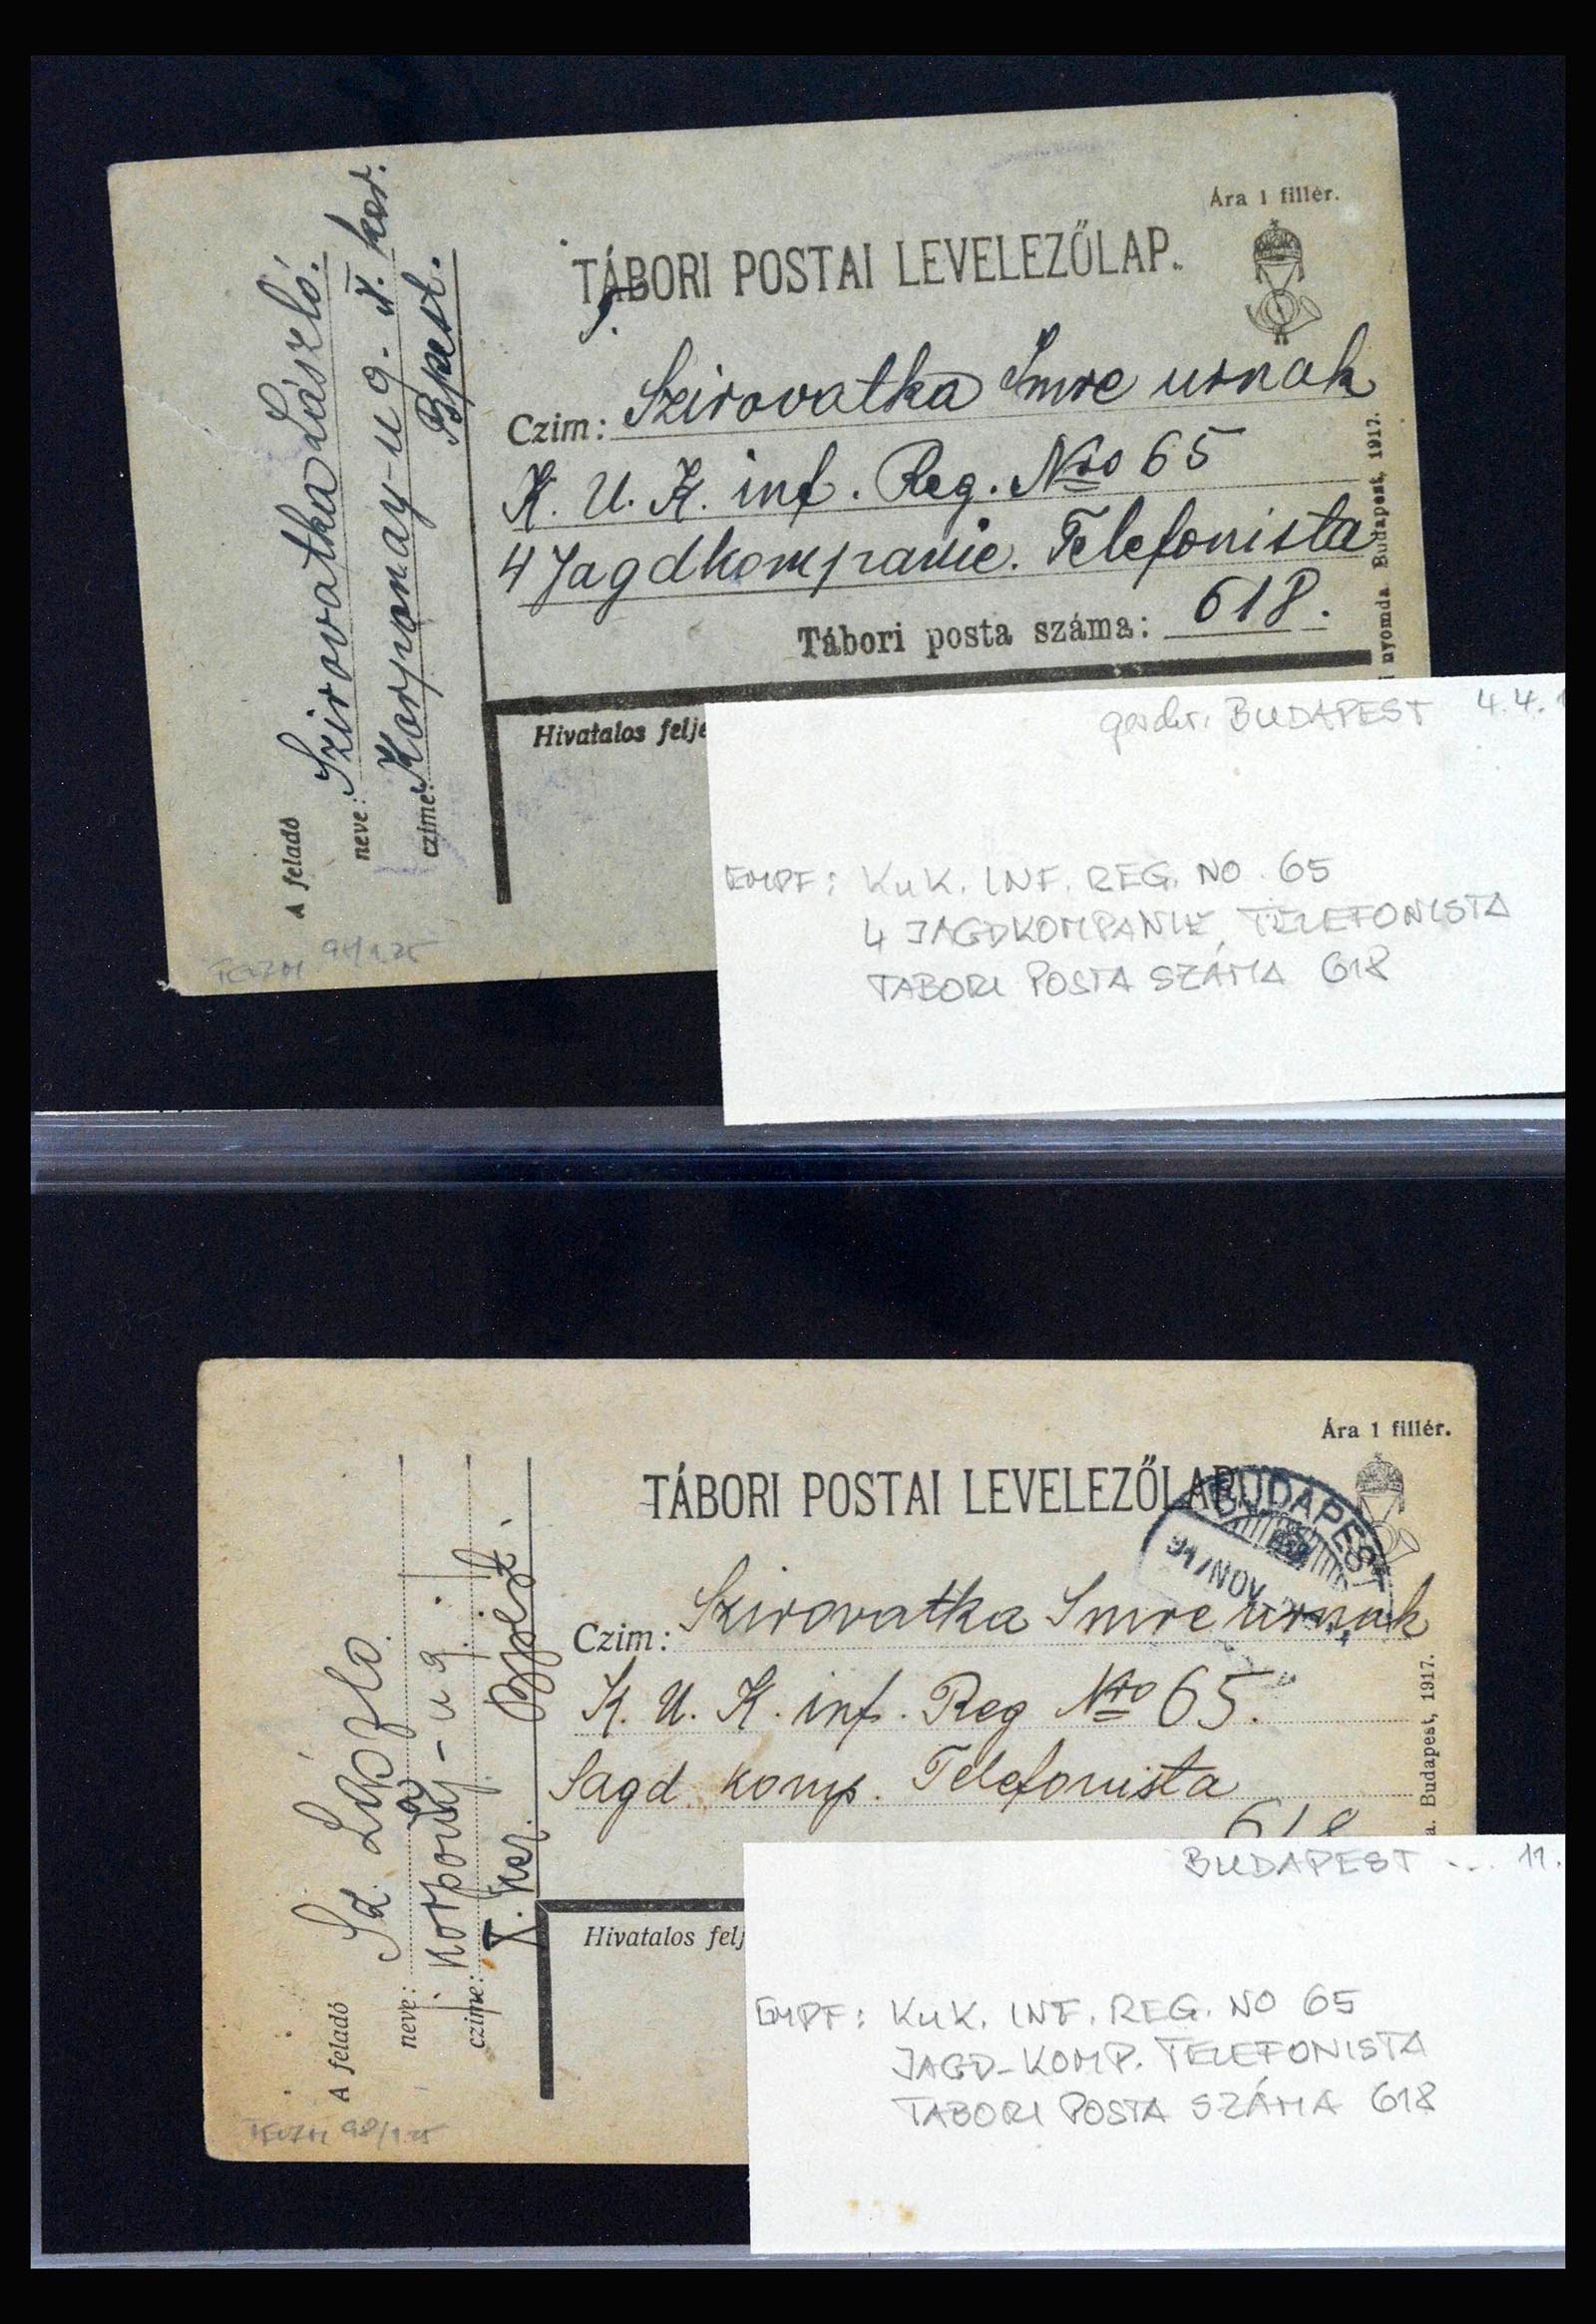 Ára 1 fillér.
TÁBORI POSTAI LEVELEZŐLAP.
Czim: Szirovatka Imre urnak
K. U. K. inf. Reg. Nro 65
4 Jagdkompanie. Telefonista
Tábori posta száma: 618.
nyomda Budapest, 1917.
A feladó
neve: Szirovatka László.
czime: Korponay-u 9. X. ker.
Bpest.
Hivatalos felje
98/1.25
geschr. BUDAPEST 4.4.1
EMPF: KuK. INF. REG. NO. 65
4 JAGDKOMPANIE, TELEFONISTA
TABORI POSTA SZÁMA 618
Ára 1 fillér.
TÁBORI POSTAI LEVELEZŐLAP.
BUDAPEST
917 NOV
Czim: Szirovatka Imre urnak
K. U. K. inf. Reg Nro 65.
Jagd komp. Telefonista
618
a. Budapest, 1917.
A feladó
neve: Sz. László.
czime: Korponay-u 9.
X. ker. Bpest.
Hivatalos felj
98/1.25
BUDAPEST ... 11.
EMPF: KuK. INF. REG. NO 65
JAGD-KOMP. TELEFONISTA
TABORI POSTA SZÁMA 618